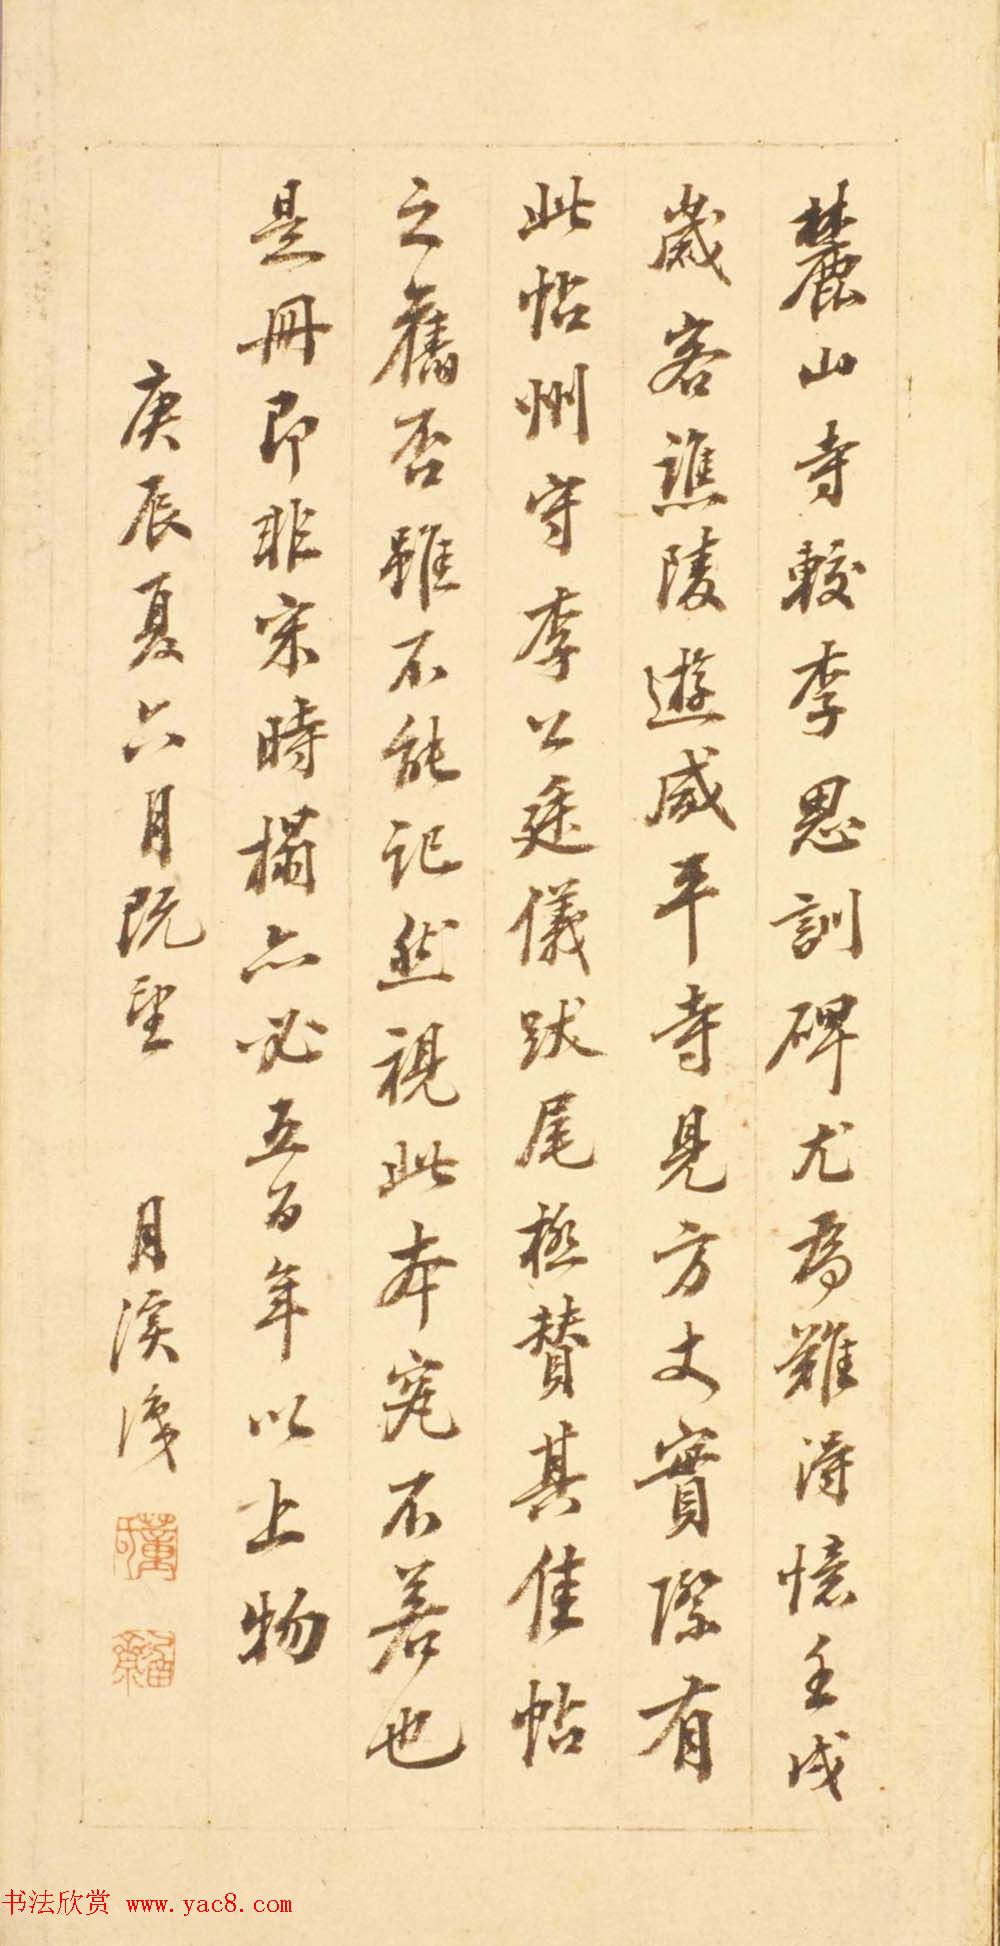 麓山寺較李思訓碑尤為難得憶壬戌
歲客譙陵遊咸平寺寺見方丈實際有
此帖州守李公廷儀跋尾極贊其佳帖
之舊否雖不能記然視此本宛不若也
是冊即非宋時榻亦必五百年以上物
庚辰夏六月既望 月溪識
董氏
書法欣賞 www.yac8.com